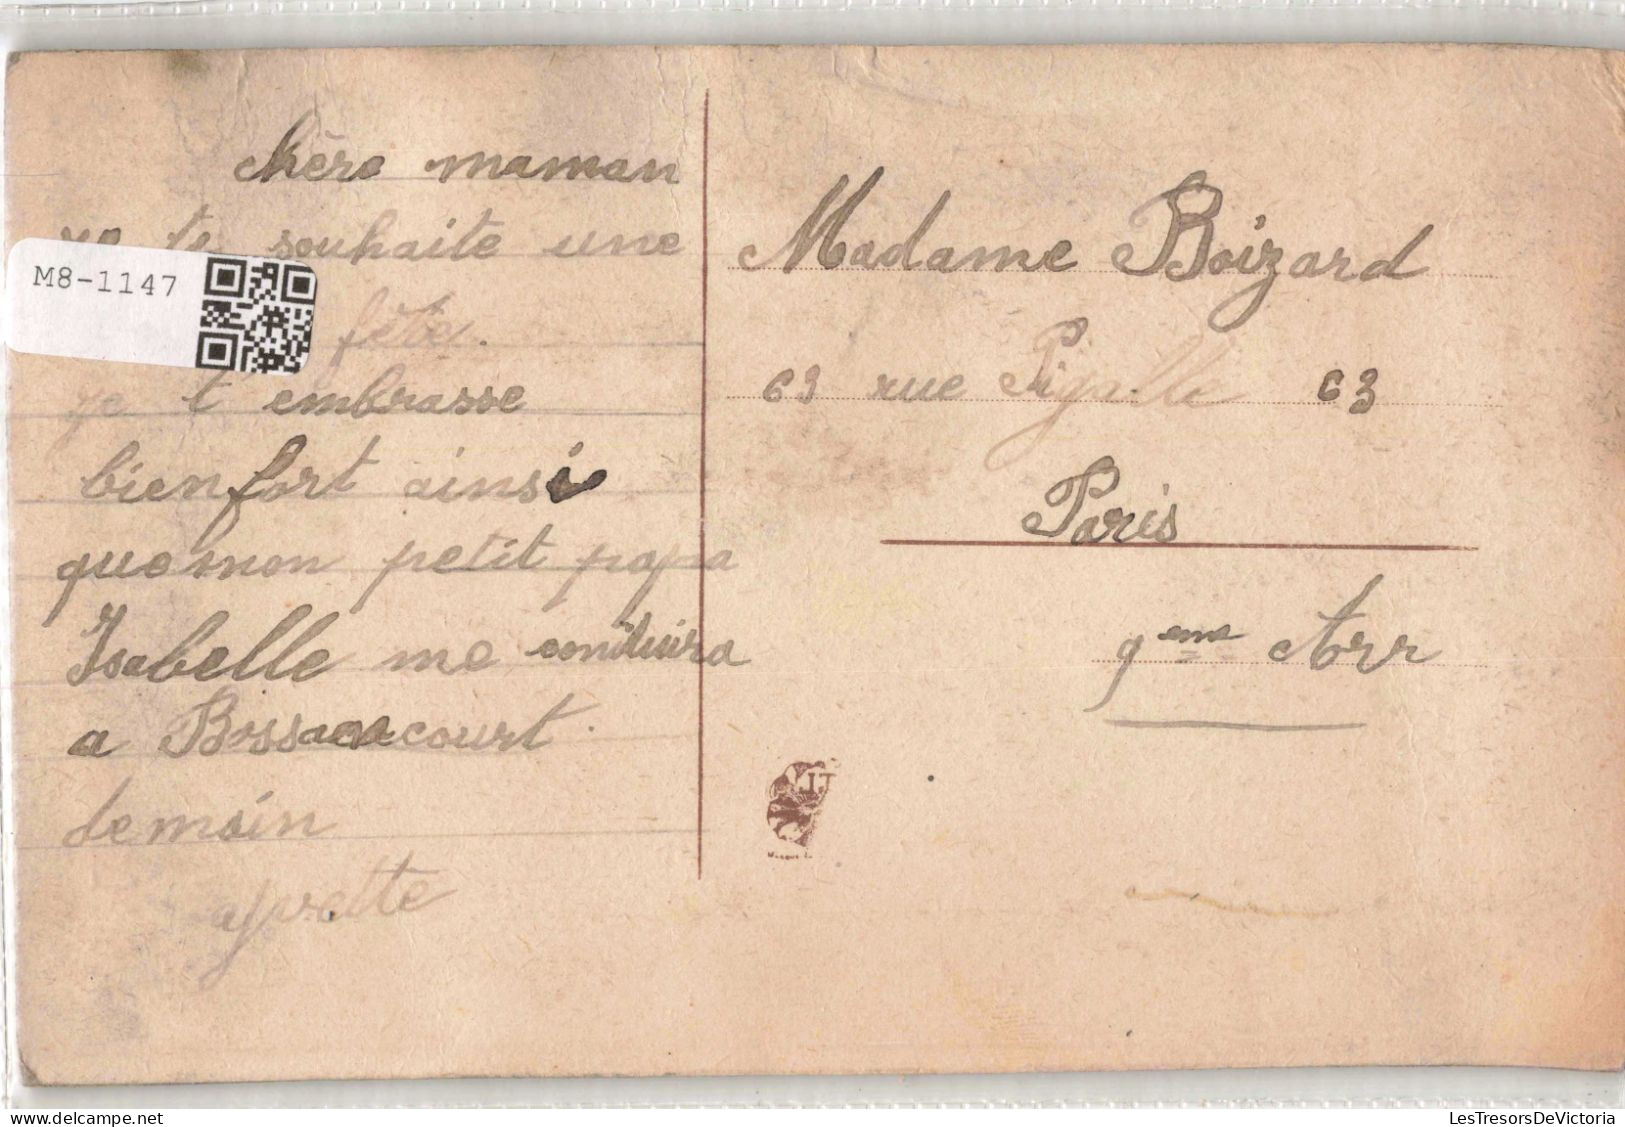 chère maman
je te souhaite une
fête.
je t'embrasse
bien fort ainsi
que mon petit papa
Isabelle me conduira
a Bessancourt.
demain
yvette
M8-1147
Madame Boizard
63 rue Pigalle 63
Paris
9eme Arr
LesTresorsDeVictoria